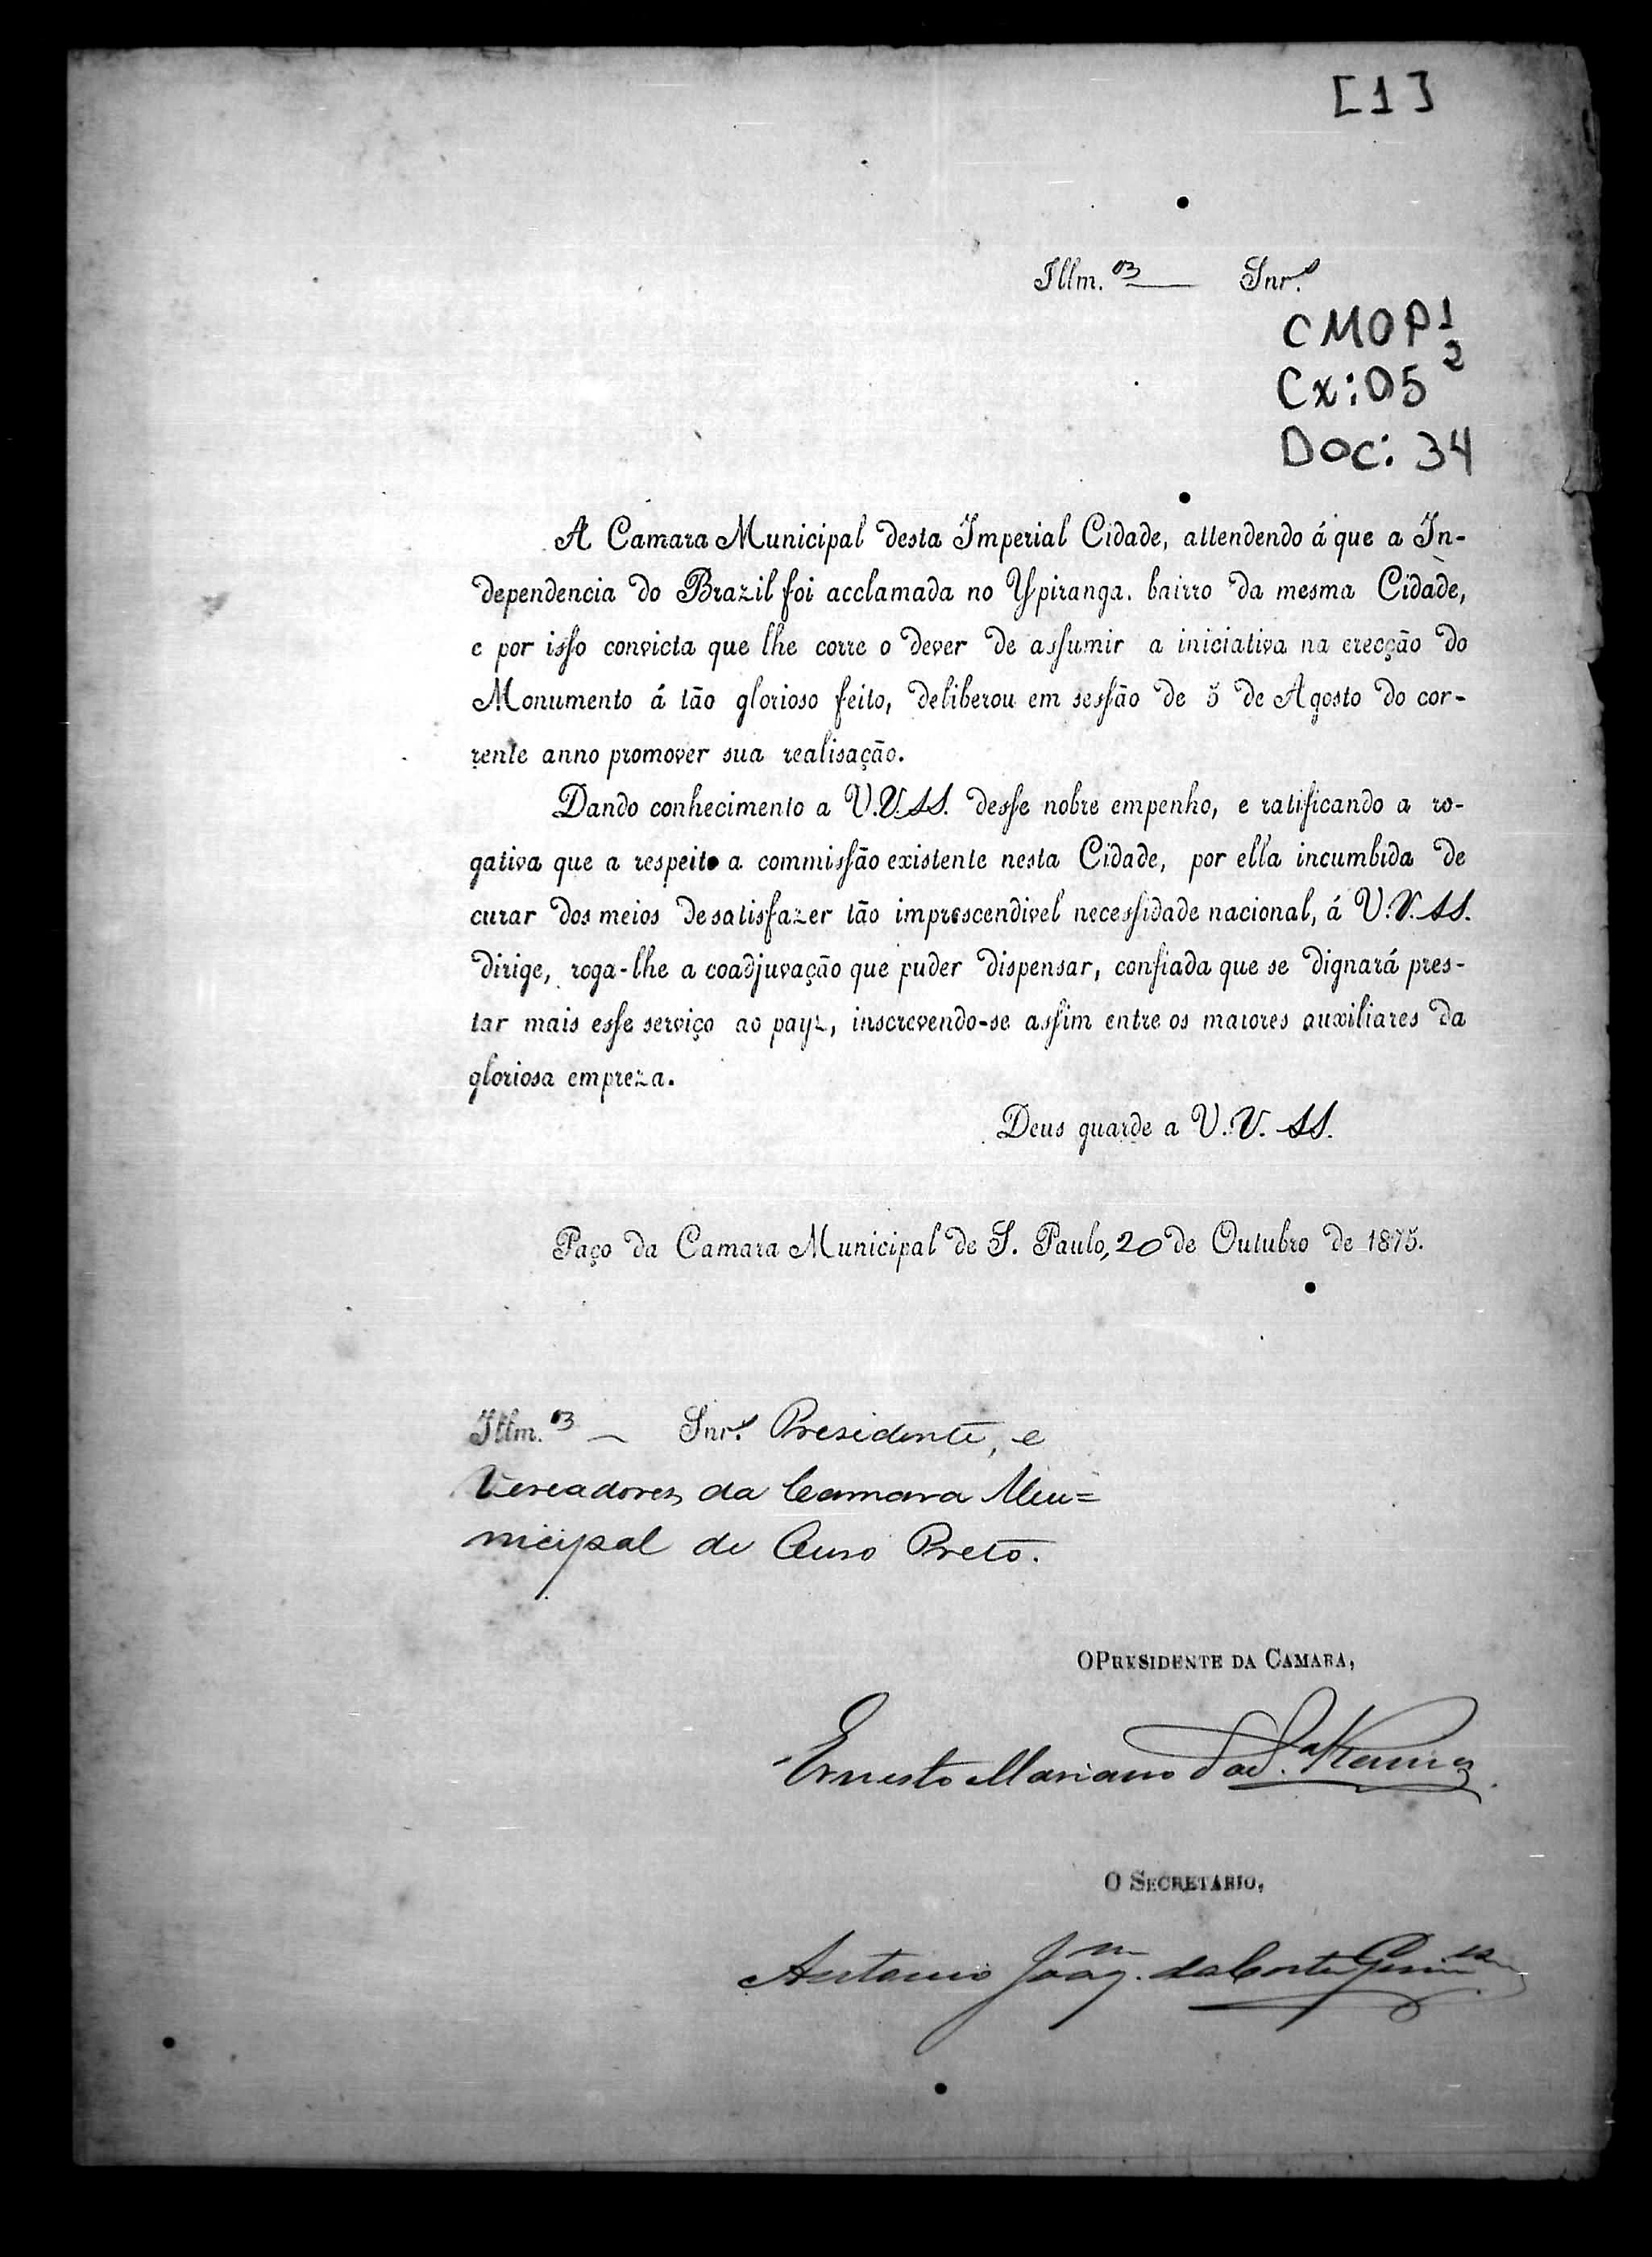 [1]
Illm.os Snr.s
CMOP 1
2
Cx: 05
Doc: 34
A Camara Municipal desta Imperial Cidade, attendendo á que a In-
dependencia do Brazil foi acclamada no Ypiranga, bairro da mesma Cidade,
e por isso convicta que lhe corre o dever de assumir a iniciativa na erecção do
Monumento á tão glorioso feito, deliberou em sessão de 5 de Agosto do cor-
rente anno promover sua realisação.
Dando conhecimento a V.V. SS. desse nobre empenho, e ratificando a ro-
gativa que a respeito a commissão existente nesta Cidade, por ella incumbida de
curar dos meios de satisfazer tão imprescendivel necessidade nacional, á V.V. SS.
dirige, roga-lhe a coadjuvação que puder dispensar, confiada que se dignará pres-
tar mais esse serviço ao payz, inscrevendo-se assim entre os maiores auxiliares da
gloriosa empreza.
Deus guarde a V.V. SS.
Paço da Camara Municipal de S. Paulo, 20 de Outubro de 1875.
Illm.os Snr.s Presidente, e
Vereadores da Camara Mu=
nicipal de Ouro Preto.
O PRESIDENTE DA CAMARA,
Ernesto Mariano da S.a Ramos
O SECRETARIO,
Antonio Joaq.m da Costa Guim.es